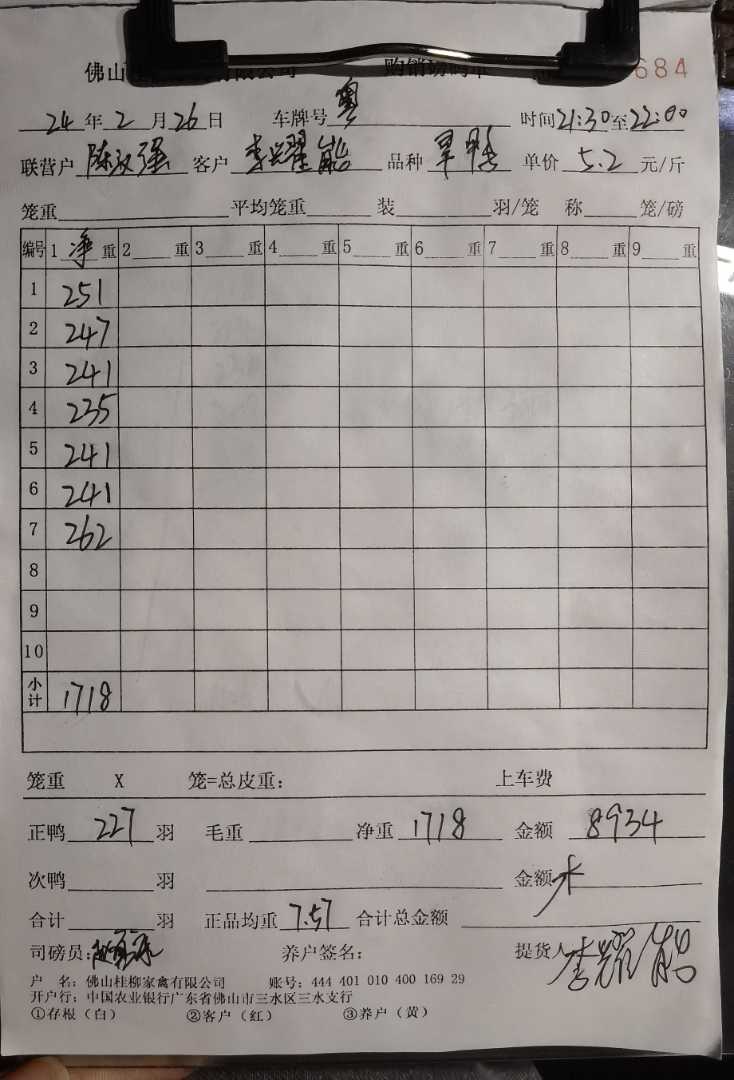 佛山 有限公司 684
24年2月26日 车牌号 粤 时间21:30至22:00
联营户 陈汉强 客户 李耀能 品种 旱鸭 单价 5.2 元/斤
笼重 平均笼重 装 羽/笼 称 笼/磅
编号 1 净 重 2 重 3 重 4 重 5 重 6 重 7 重 8 重 9 重
1 251
2 247
3 241
4 235
5 241
6 241
7 262
8
9
10
小计 1718
笼重 X 笼=总皮重: 上车费
正鸭 227 羽 毛重 净重 1718 金额 8934
次鸭 羽 金额
合计 羽 正品均重 7.57 合计总金额
司磅员: 养户签名: 提货人 李耀能
户 名: 佛山桂柳家禽有限公司 账号: 444 401 010 400 169 29
开户行: 中国农业银行广东省佛山市三水区三水支行
①存根(白) ②客户(红) ③养户(黄)